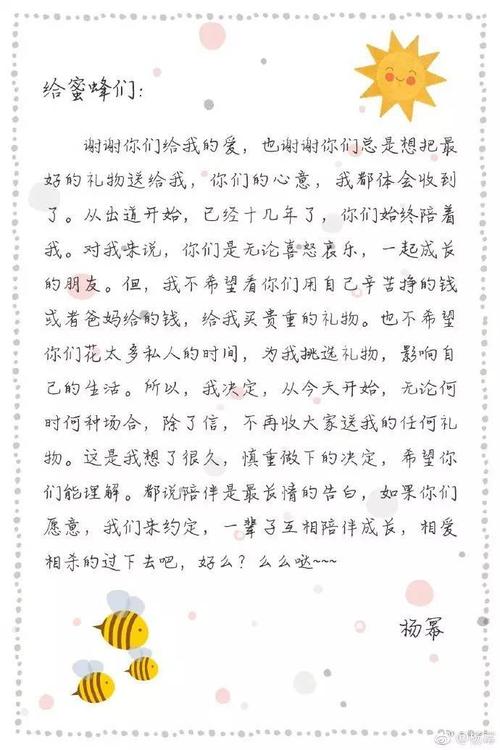 给蜜蜂们：
谢谢你们给我的爱，也谢谢你们总是想把最
好的礼物送给我，你们的心意，我都体会收到
了。从出道开始，已经十几年了，你们始终陪着
我。对我来说，你们是无论喜怒哀乐，一起成长
的朋友。但，我不希望看你们用自己辛苦挣的钱
或者爸妈给的钱，给我买贵重的礼物。也不希望
你们花太多私人的时间，为我挑选礼物，影响自
己的生活。所以，我决定，从今天开始，无论何
时何种场合，除了信，不再收大家送我的任何礼
物。这是我想了很久，慎重做下的决定，希望你
们能理解。都说陪伴是最长情的告白，如果你们
愿意，我们来约定，一辈子互相陪伴成长，相爱
相杀的过下去吧，好么？么么哒~~~
杨幂